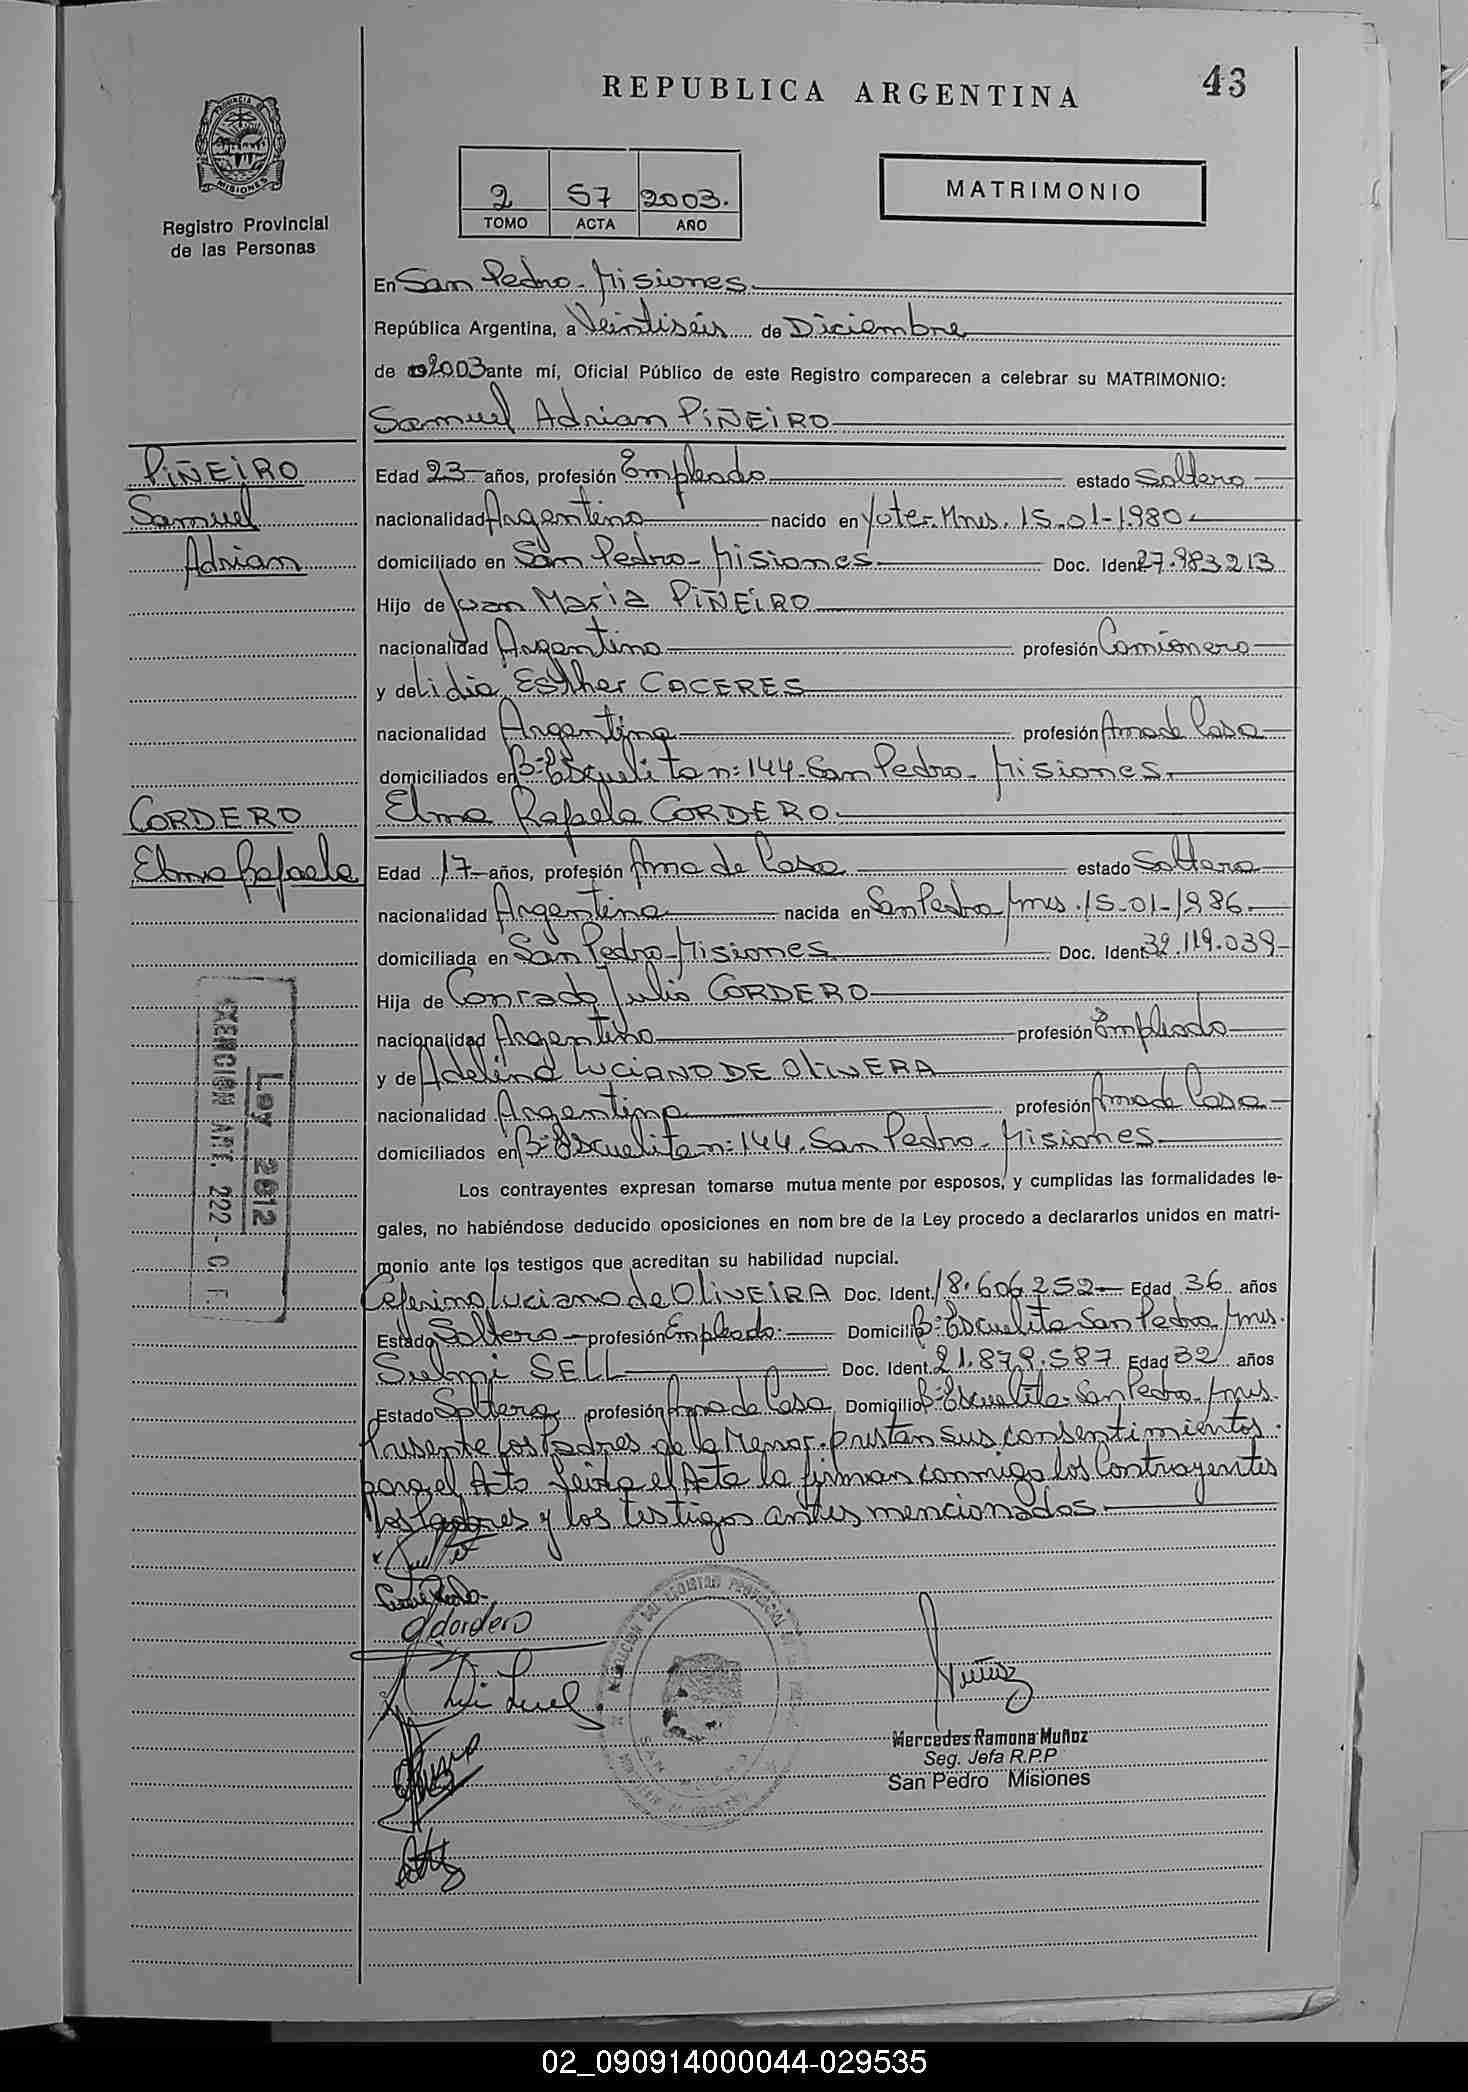 REPUBLICA ARGENTINA
43
PROVINCIA DE
MISIONES
Registro Provincial
de las Personas
2 57 2003.
TOMO ACTA AÑO
MATRIMONIO
En San Pedro - Misiones
República Argentina, a Veintiséis de Diciembre
de 2003 ante mí, Oficial Público de este Registro comparecen a celebrar su MATRIMONIO:
Samuel Adrian PIÑEIRO
PIÑEIRO
Samuel
Adrian
Edad 23 años, profesión Empleado estado Soltero
nacionalidad Argentino nacido en Yote. Mnes. 15-01-1980
domiciliado en San Pedro - Misiones Doc. Iden 27.983213
Hijo de Juan Maria PIÑEIRO
nacionalidad Argentino profesión Camionero
y de Lidia Esther CACERES
nacionalidad Argentina profesión Ama de Casa
domiciliados en B= Escuelita n: 144. San Pedro - Misiones.
Elma Rafaela CORDERO.
CORDERO
Elma Rafaela
Edad 17 años, profesión Ama de Casa estado Soltera
nacionalidad Argentina nacida en San Pedro Mnes. 15-01-1986
domiciliada en San Pedro - Misiones Doc. Ident 32.119.039
Hija de Conrado Julio CORDERO
nacionalidad Argentino profesión Empleado
y de Adelina LUCIANO DE OLIVERA
nacionalidad Argentina profesión Ama de Casa
domiciliados en B= Escuelita n: 144. San Pedro - Misiones.
Ley 2812
EXENCION ART. 222 - C. F.
Los contrayentes expresan tomarse mutua mente por esposos, y cumplidas las formalidades le-
gales, no habiéndose deducido oposiciones en nom bre de la Ley procedo a declararlos unidos en matri-
monio ante los testigos que acreditan su habilidad nupcial.
Ceferino Luciano de OLIVEIRA Doc. Ident. 18.606.252 Edad 36 años
Estado Soltero profesión Empleado: Domicili B= Escuelita San Pedro Mnes.
Suelmi SELL Doc. Ident. 21.879.587 Edad 32 años
Estado Soltera profesión Ama de Casa Domicilio B= Escuelita. San Pedro - Mnes.
Presente los Padres de la Menor. prestan sus consentimientos.
para el Acto leida el Acta la firman conmigo los Contrayentes
los Padres y los testigos antes mencionados.
Cordero
Muñoz
SAN PEDRO
Mercedes Ramona Muñoz
Seg. Jefa R.P.P
San Pedro Misiones
02_090914000044-029535